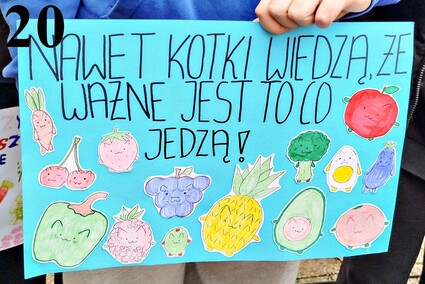 20
NAWET KOTKI WIEDZĄ, ŻE
WAŻNE JEST TO CO
JEDZĄ!